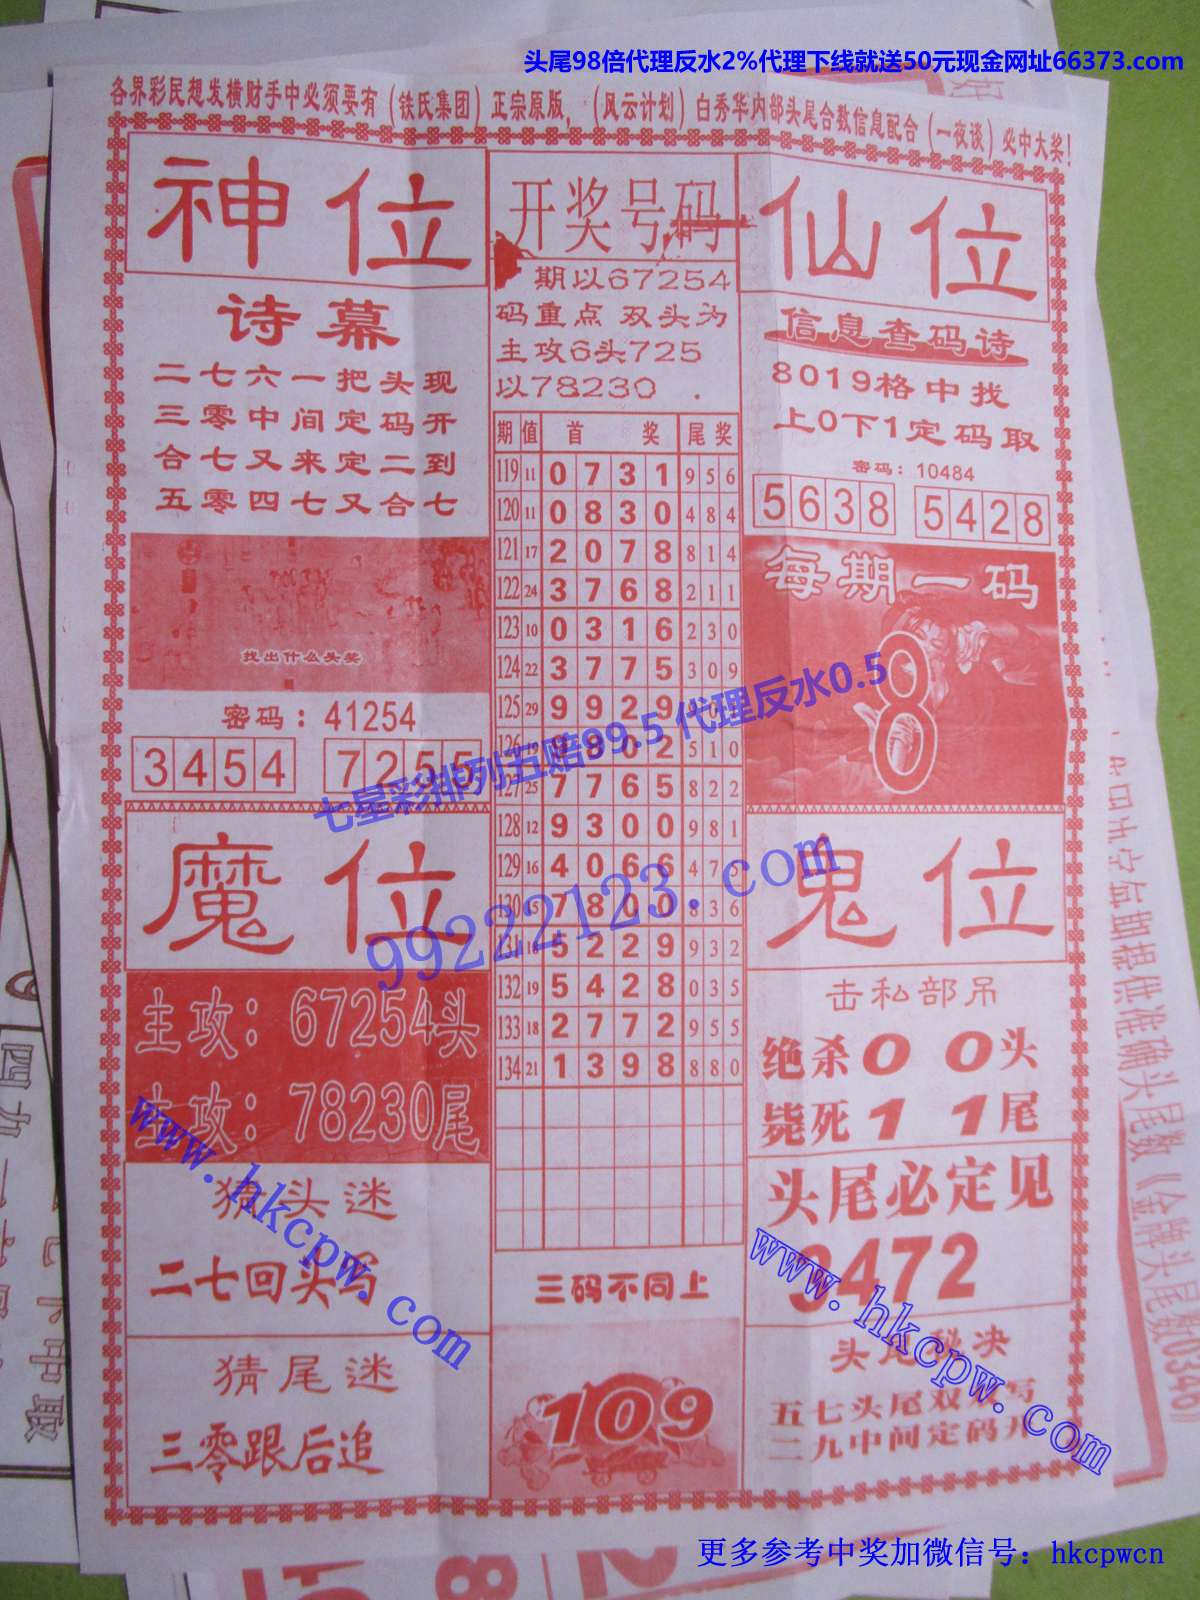 头尾98倍代理反水2%代理下线就送50元现金网址66373.com
各界彩民想发横财手中必须要有（铁氏集团）正宗原版，（风云计划）白秀华内部头尾合数信息配合（一夜谈）必中大奖！
神位
诗幕
二七六一把头现
三零中间定码开
合七又来定二到
五零四七又合七
找出什么头奖
密码：41254
3454 7255
魔位
主攻：67254头
主攻：78230尾
猜头迷
二七回头
猜尾迷
三零跟后追
开奖号码
期以67254
码重点 双头为
主攻6头725
以78230 .
期 值 首 奖 尾奖
119 11 0 7 3 1 9 5 6
120 11 0 8 3 0 4 8 4
121 17 2 0 7 8 8 1 4
122 24 3 7 6 8 2 1 1
123 10 0 3 1 6 2 3 0
124 22 3 7 7 5 3 0 9
125 29 9 9 2 9
126 19 9 8 0 2 5 1 0
127 25 7 7 6 5 8 2 2
128 12 9 3 0 0 9 8 1
129 16 4 0 6 6 4 7 5
130 15 7 8 0 0 8 3 6
131 18 5 2 2 9 9 3 2
132 19 5 4 2 8 0 3 5
133 18 2 7 7 2 9 5 5
134 21 1 3 9 8 8 8 0
三码不同上
109
仙位
信息查码诗
8019格中找
上0下1定码取
密码：10484
5638 5428
每期一码
8
鬼位
击私部吊
绝杀0 0头
毙死1 1尾
头尾必定见
9472
头尾秘决
五七头尾双双写
二九中间定码开
七星彩排列五赔99.5 代理反水0.5
99222123.com
www.hkcpw.com
www.hkcpw.com
更多参考中奖加微信号：hkcpwcn